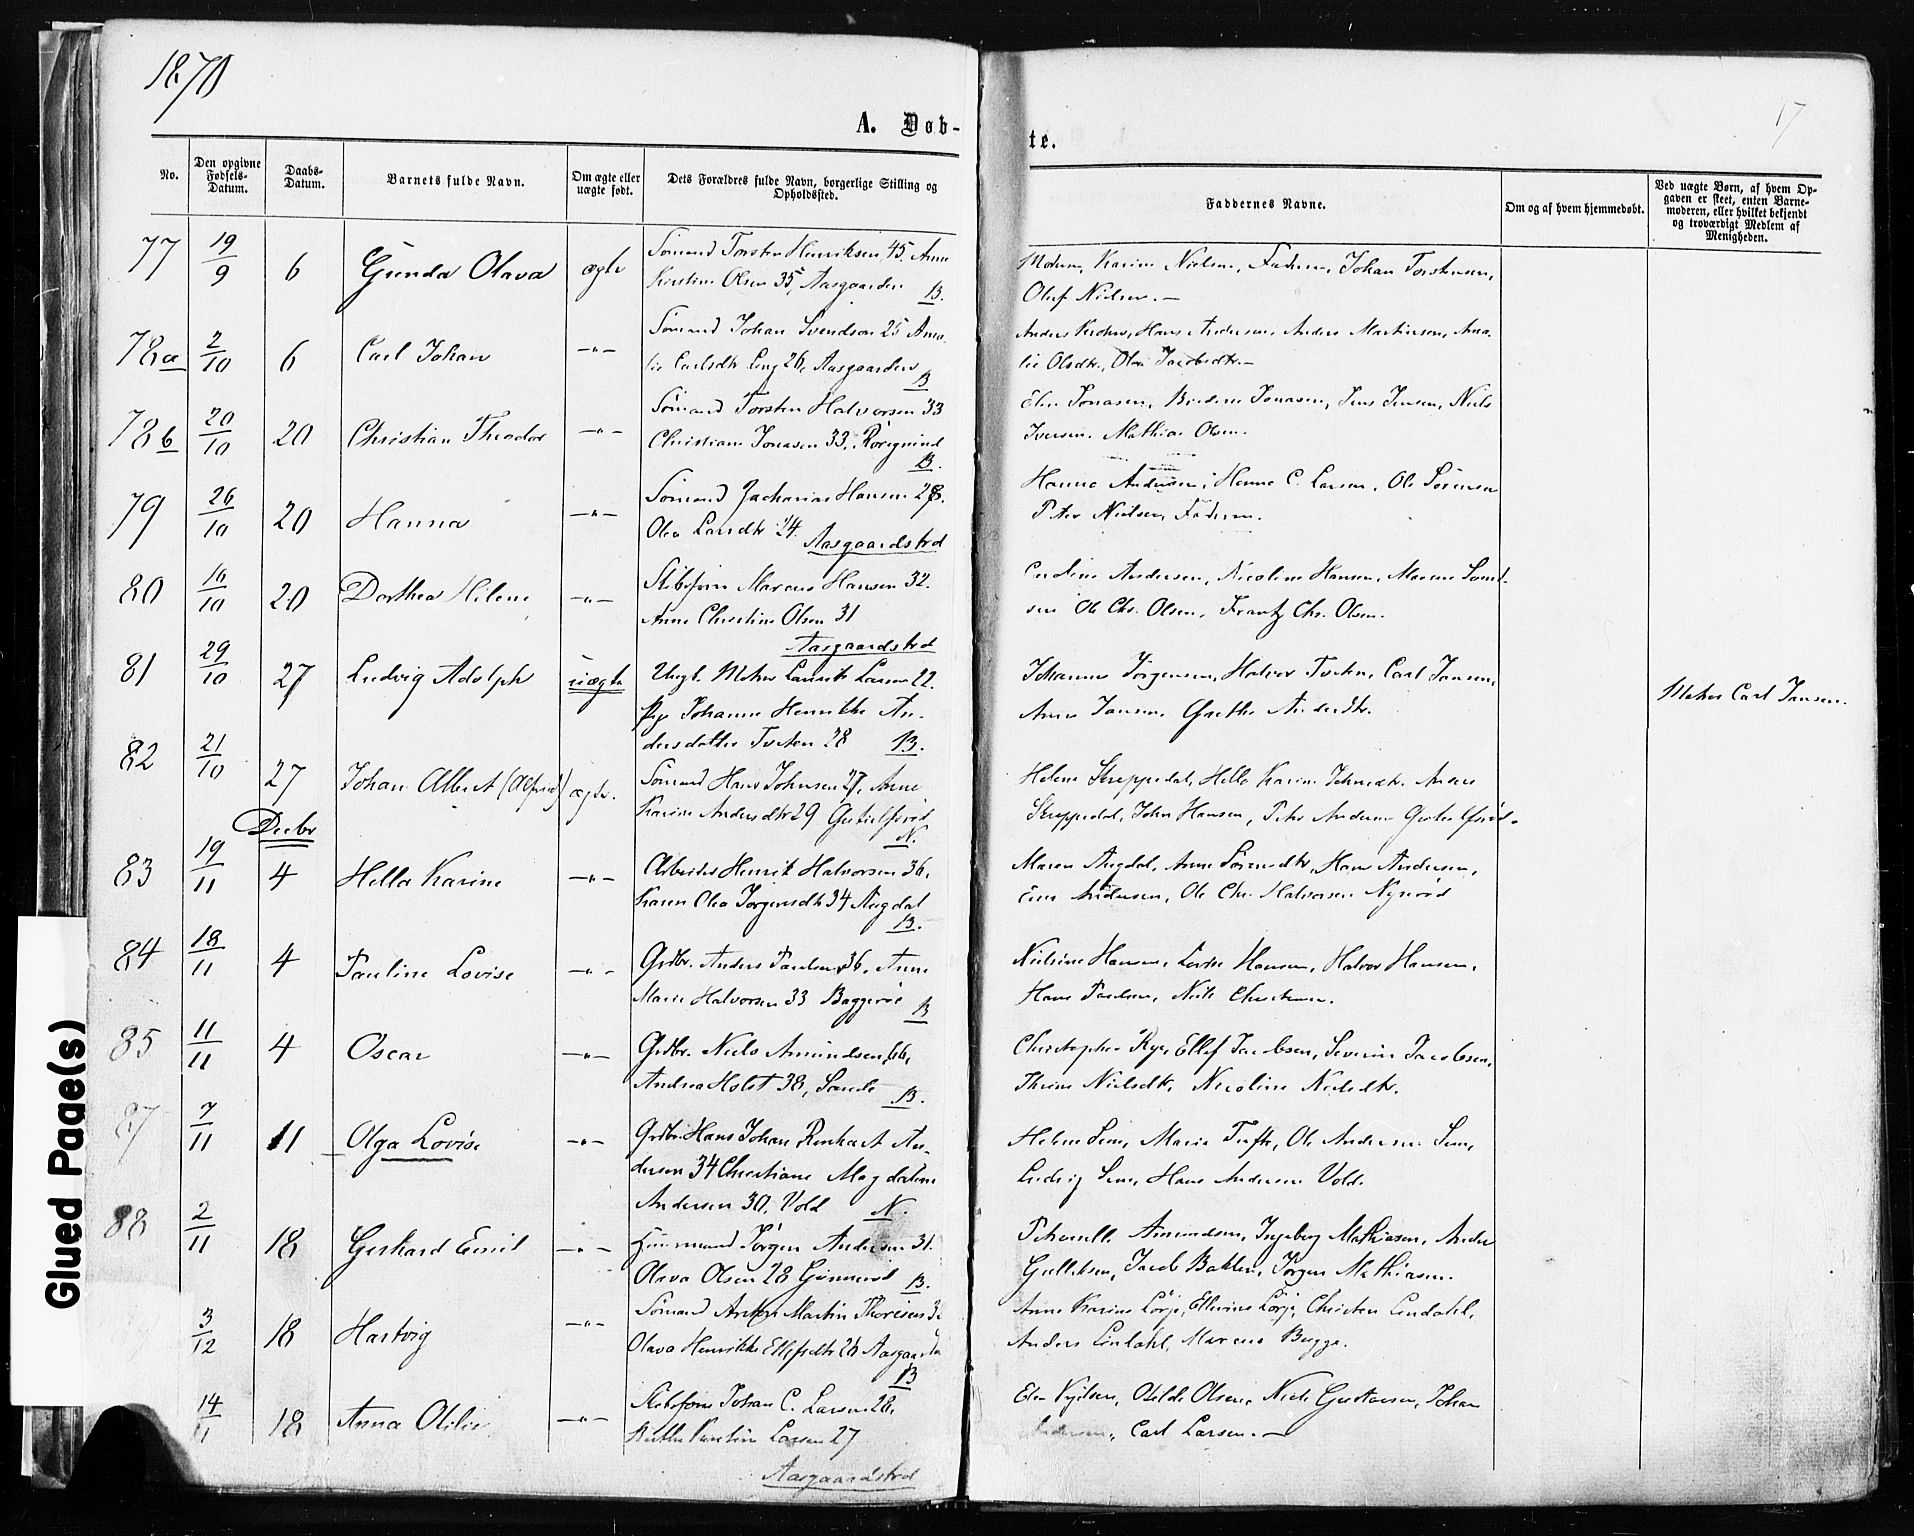 1870
17
A. Døb-
te.
No.
Den opgivne Fødsels-Datum.
Daabs-Datum.
Barnets fulde Navn.
Om ægte eller uægte født.
Dets Forældres fulde Navn, borgerlige Stilling og Opholdssted.
Faddernes Navne.
Om og af hvem hjemmedøbt.
Ved uægte Børn, af hvem Op-
gaven er skeet, enten Barne-
moderen, eller hvilket bekjendt
og troværdigt Medlem af
Menigheden.
77 19/9 6 Gunda Olava ægte
Sømand Torsten Henriksen 45, Anne
Kirstine Olsen 35, Aasgaarden B.
Moderen, Karine Nielsen, Faderen, Johan Torstensen,
Oluf Nielsen. —
78a 2/10 6 Carl Johan —"—
Sømand Johan Svendsen 25 Ama-
lie Carlsdtr 26, Aasgaarden B
Hans Andersen, Anders Martinsen, Ama-
lie Olsdtr., Olea Jacobsdtr. —
78b 20/10 20 Christian Theodor —"—
Sømand Torsten Halvorsen 33
Christiane Jonasen 33, B.
Elen Jonasen, Jonasen, Jens Jensen, Niels
Iversen, Mathias Olsen.
79 26/10 20 Hanna —"—
Sømand Zacharias Hansen 28.
Olea Larsdtr 24. Aasgaardstrd
Hanna Andersen, Hanna C. Larsen, Ole Sørensen
Peter Nielsen, Faderen.
80 16/10 20 Dorthea Helene —"—
Skibstøm Marcus Hansen 32.
Anne Christine Olsen 31
Aasgaardstrd
Caroline Andersen, Nicoline Hansen, Maren Svend-
sen Ole Chr. Olsen, Frantz Chr. Olsen.
81 29/10 27 Ludvig Adolph uægte
Ungk. Laurits Larsen 22.
Pige Johanne Henrikke An-
dersdatter Tveten 28 B.
Johannes Jørgensen, Halvor Tveten, Carl Jansen,
Anne Jansen, Grethe Andersdtr.
Carl Jansen.
82 21/10 27 Johan Albert (Alfred) ægte.
Sømand Hans Johnsen 27, Anne
Karine Andersdtr 29 N.
Helene Skreppedal, Hella Karine Johnsdtr. Anders
Skreppedal, John Hansen, Peter Andersen
Decbr
83 19/11 4 Hella Karine —"—
Arbeider Henrik Halvorsen 36,
Karen Olea Jørgensdtr 34 Augdal
B.
Maren Augdal, Anne Sørensdtr, Hans Andersen,
Andersen, Ole Chr. Halvorsen Nyerød
84 18/11 4 Pauline Lovise —"—
Grdbr. Anders Paulsen 36, Anne
Marie Halvorsen 33 Baggerøe B
Nielsine Hansen, Lovise Hansen, Halvor Hansen,
Hans Paulsen, Niels Christensen.
85 11/11 4 Oscar —"—
Grdbr. Niels Amundsen 66,
Andrea Holst 38, Sande B.
Christopher Rye, Ellef Jacobsen, Severin Jacobsen,
Thrine Nielsdtr, Nicoline Nielsdtr.
87 7/11 11 Olga Lovise —"—
Grdbr. Hans Johan Renhart An-
dersen 34 Christiane Magdalene
Andersen 30, Vold N.
Helene Sem, Maria Tufte, Ole Andersen Sem,
Ludvig Sem, Hans Andersen Vold.
88 2/11 18 Gerhard Emil —"—
Jørgen Andersen 31.
Olava Olsen 28 B.
Petronelle Amundsen, Ingeborg Mathiasen, Anders
Gulliksen, Jacob Bakken, Jørgen Mathiasen.
3/12 18 Hartvig —"—
Sømand Anton Martin Thoresen
Olava Henrikke Ellefsdtr 28 Aasgaarden
B
Anne Karine Lørje, Ellevine Lørje, Christen Lindahl,
Anders Lindahl, Marcus Bugge.
14/11 18 Anna Otilie —"—
Skibstøm Johan C. Larsen 28,
Larsen 27
Aasgaardstrd
Olsen, Niels Gustavsen, Johan
Andersen, Carl Larsen. —
Glued Page(s)